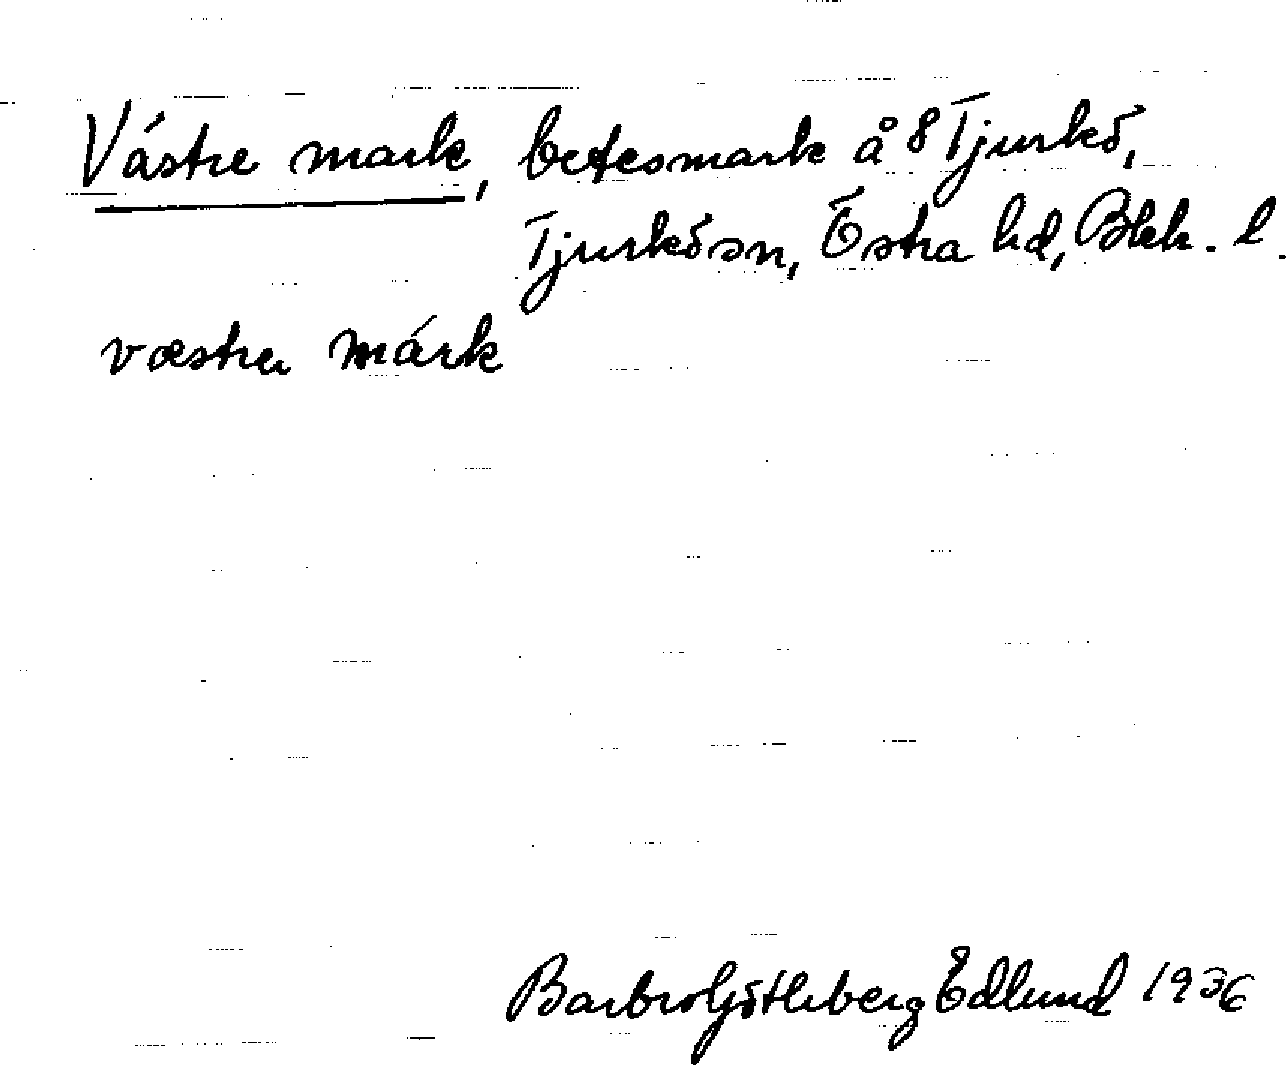 Västre mark, betesmark å 8 Tjurkö,
Tjurkö sn, Östra hd, Blek. l.
væstra márk
Barbro Götlberg Edlund 1936